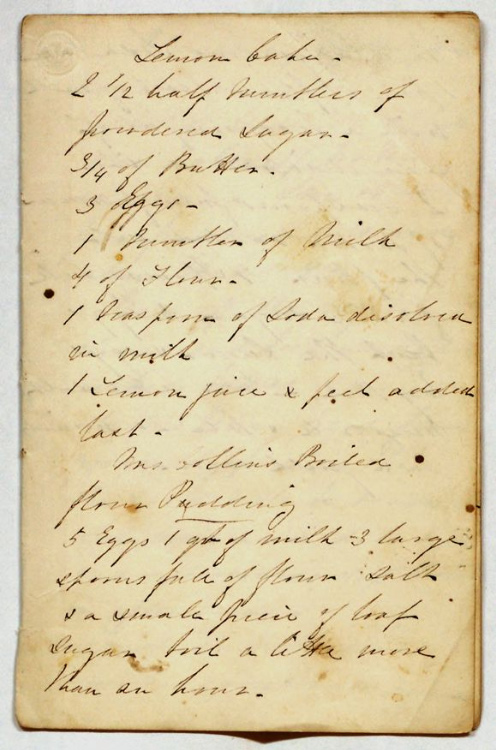 Lemon Cake -
2 1/2 half tumblers of
powdered Sugar -
3/4 of Butter.
3 Eggs -
1 tumbler of Milk
4 of Flour -
1 teaspoon of Soda disolved
in milk
1 Lemon juice & peel added
last -
Mrs Collins Boiled
flour Pudding
5 Eggs 1 qt of milk - 3 large
spoons full of flour salt
& a small piece of loaf
sugar boil a little more
than an hour -